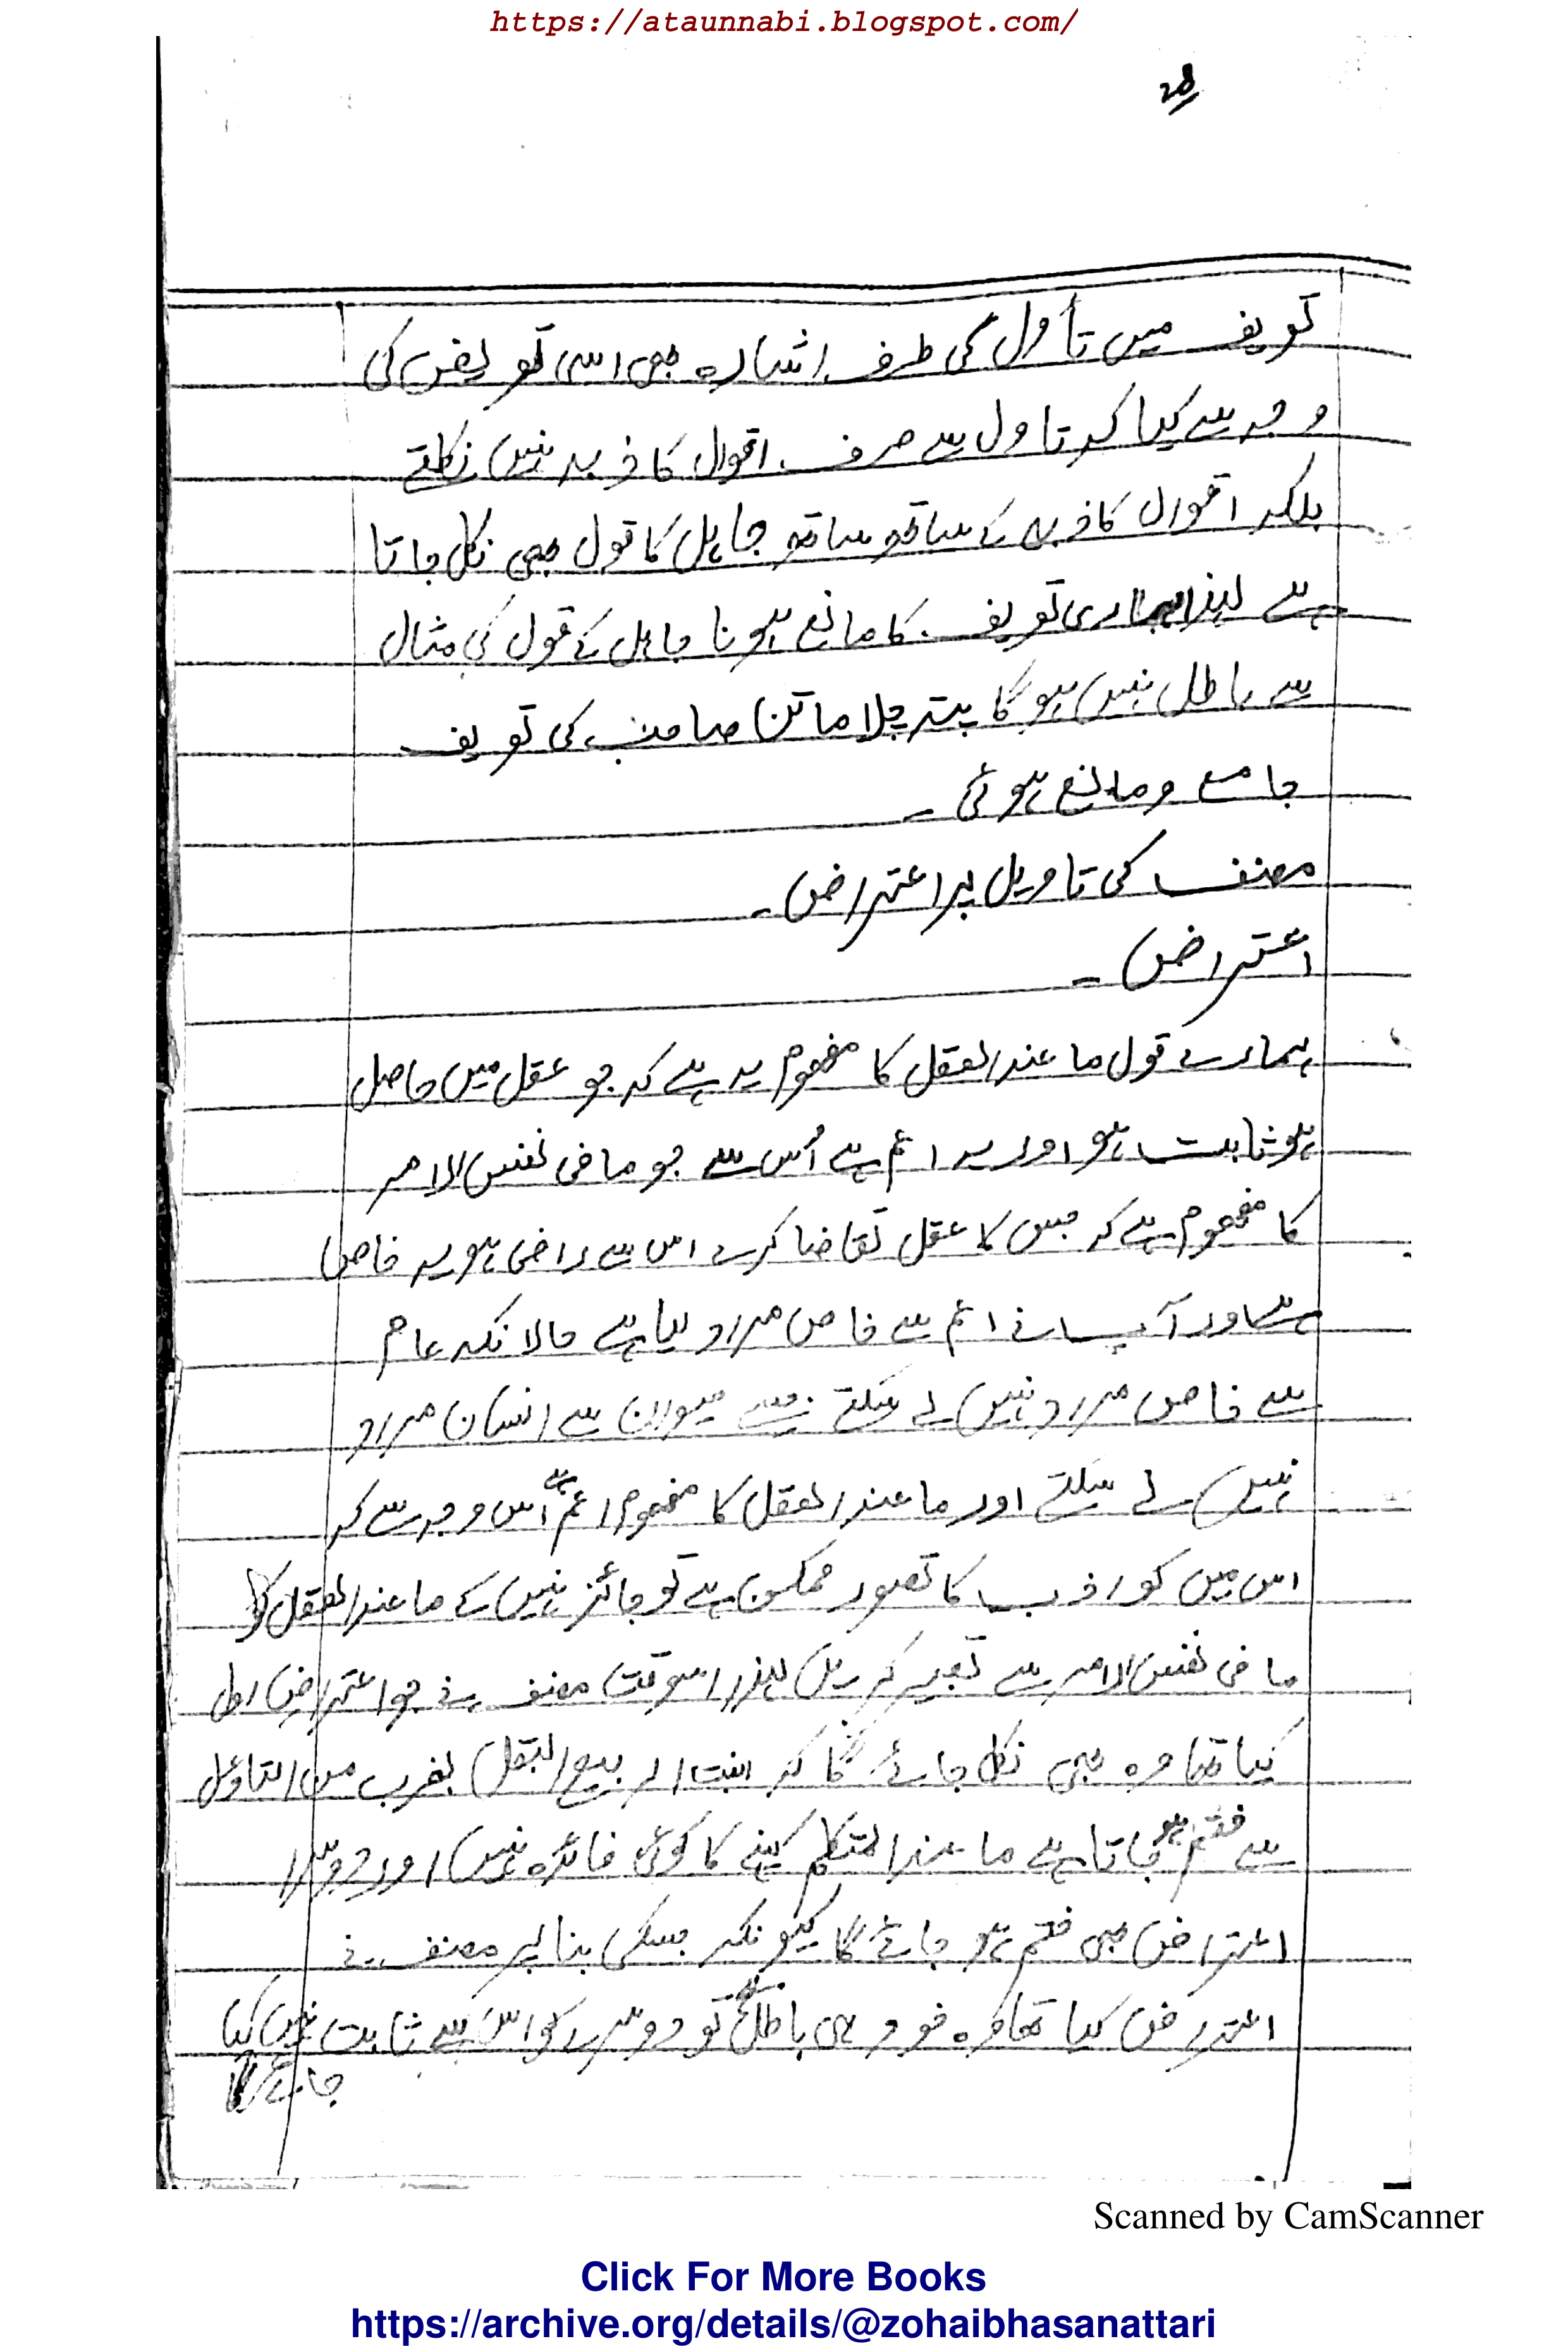 https://ataunnabi.blogspot.com/
تعریف میں تأول کی طرف اشارہ بھی اسی تعریض کی
وجہ سے کیا کہ تاول سے صرف اقوال کاذبہ نہیں نکلتے
بلکہ اقوال کاذبہ کے ساتھ ساتھ جاہل کا قول بھی نکل جاتا
ہے لہذا ہماری تعریف کا مانع ہونا جاہل کے قول کی مثال
سے باطل نہیں ہوگا پتہ چلا ماتن صاحب کی تعریف
جامع و مانع ہوئی ۔
مصنف کی تاویل پر اعتراض ۔
اعتراض ۔
ہمارے قول ما عند العقل کا مفہوم یہ ہے کہ جو عقل میں حاصل
ہو ثابت ہو اور یہ اعم ہے اُس سے جو ما فی نفس الامر
کا مفہوم ہے کہ جس کا عقل تقاضا کرے اس سے راضی ہو یہ خاص
ہے اور آپ نے اعم سے خاص مراد لیا ہے حالانکہ عام
سے خاص مراد نہیں لے سکتے جیسے حیوان سے انسان مراد
نہیں لے سکتے اور ما عند العقل کا مفہوم اعم ہے اس وجہ سے کہ
اس میں کواذب کا تصور ممکن ہے تو جائز نہیں کے ما عند العقل کو
ما فی نفس الامر سے تعبیر کریں لہذا اسوقت مصنف نے جو اعتراض اول
کیا تھا وہ بھی نکل جائے گا کہ انبت الربیع البقل بضرب من التاول
سے ختم ہو جاتا ہے ما عند المتکلم کہنے کا کوئی فائدہ نہیں اور دوسرا
اعتراض بھی ختم ہو جائے گا کیونکہ جسکی بنا پر مصنف نے
اعتراض کیا تھا وہ خود ہی باطل ہے تو دوسرے کو اس سے ثابت نہیں کیا
جائے گا
Scanned by CamScanner
Click For More Books
https://archive.org/details/@zohaibhasanattari